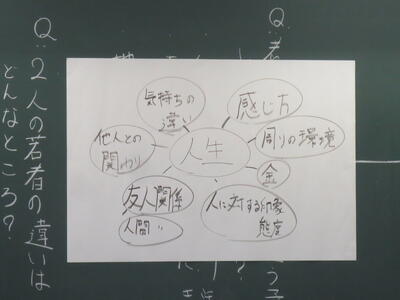 Q:2人の若者の違いは
どんなところ?
気持ちの
違い
感じ方
他人との
関わり
人生
周りの環境
金
友人関係
人間〃
人に対する印象
態度
Q:若者